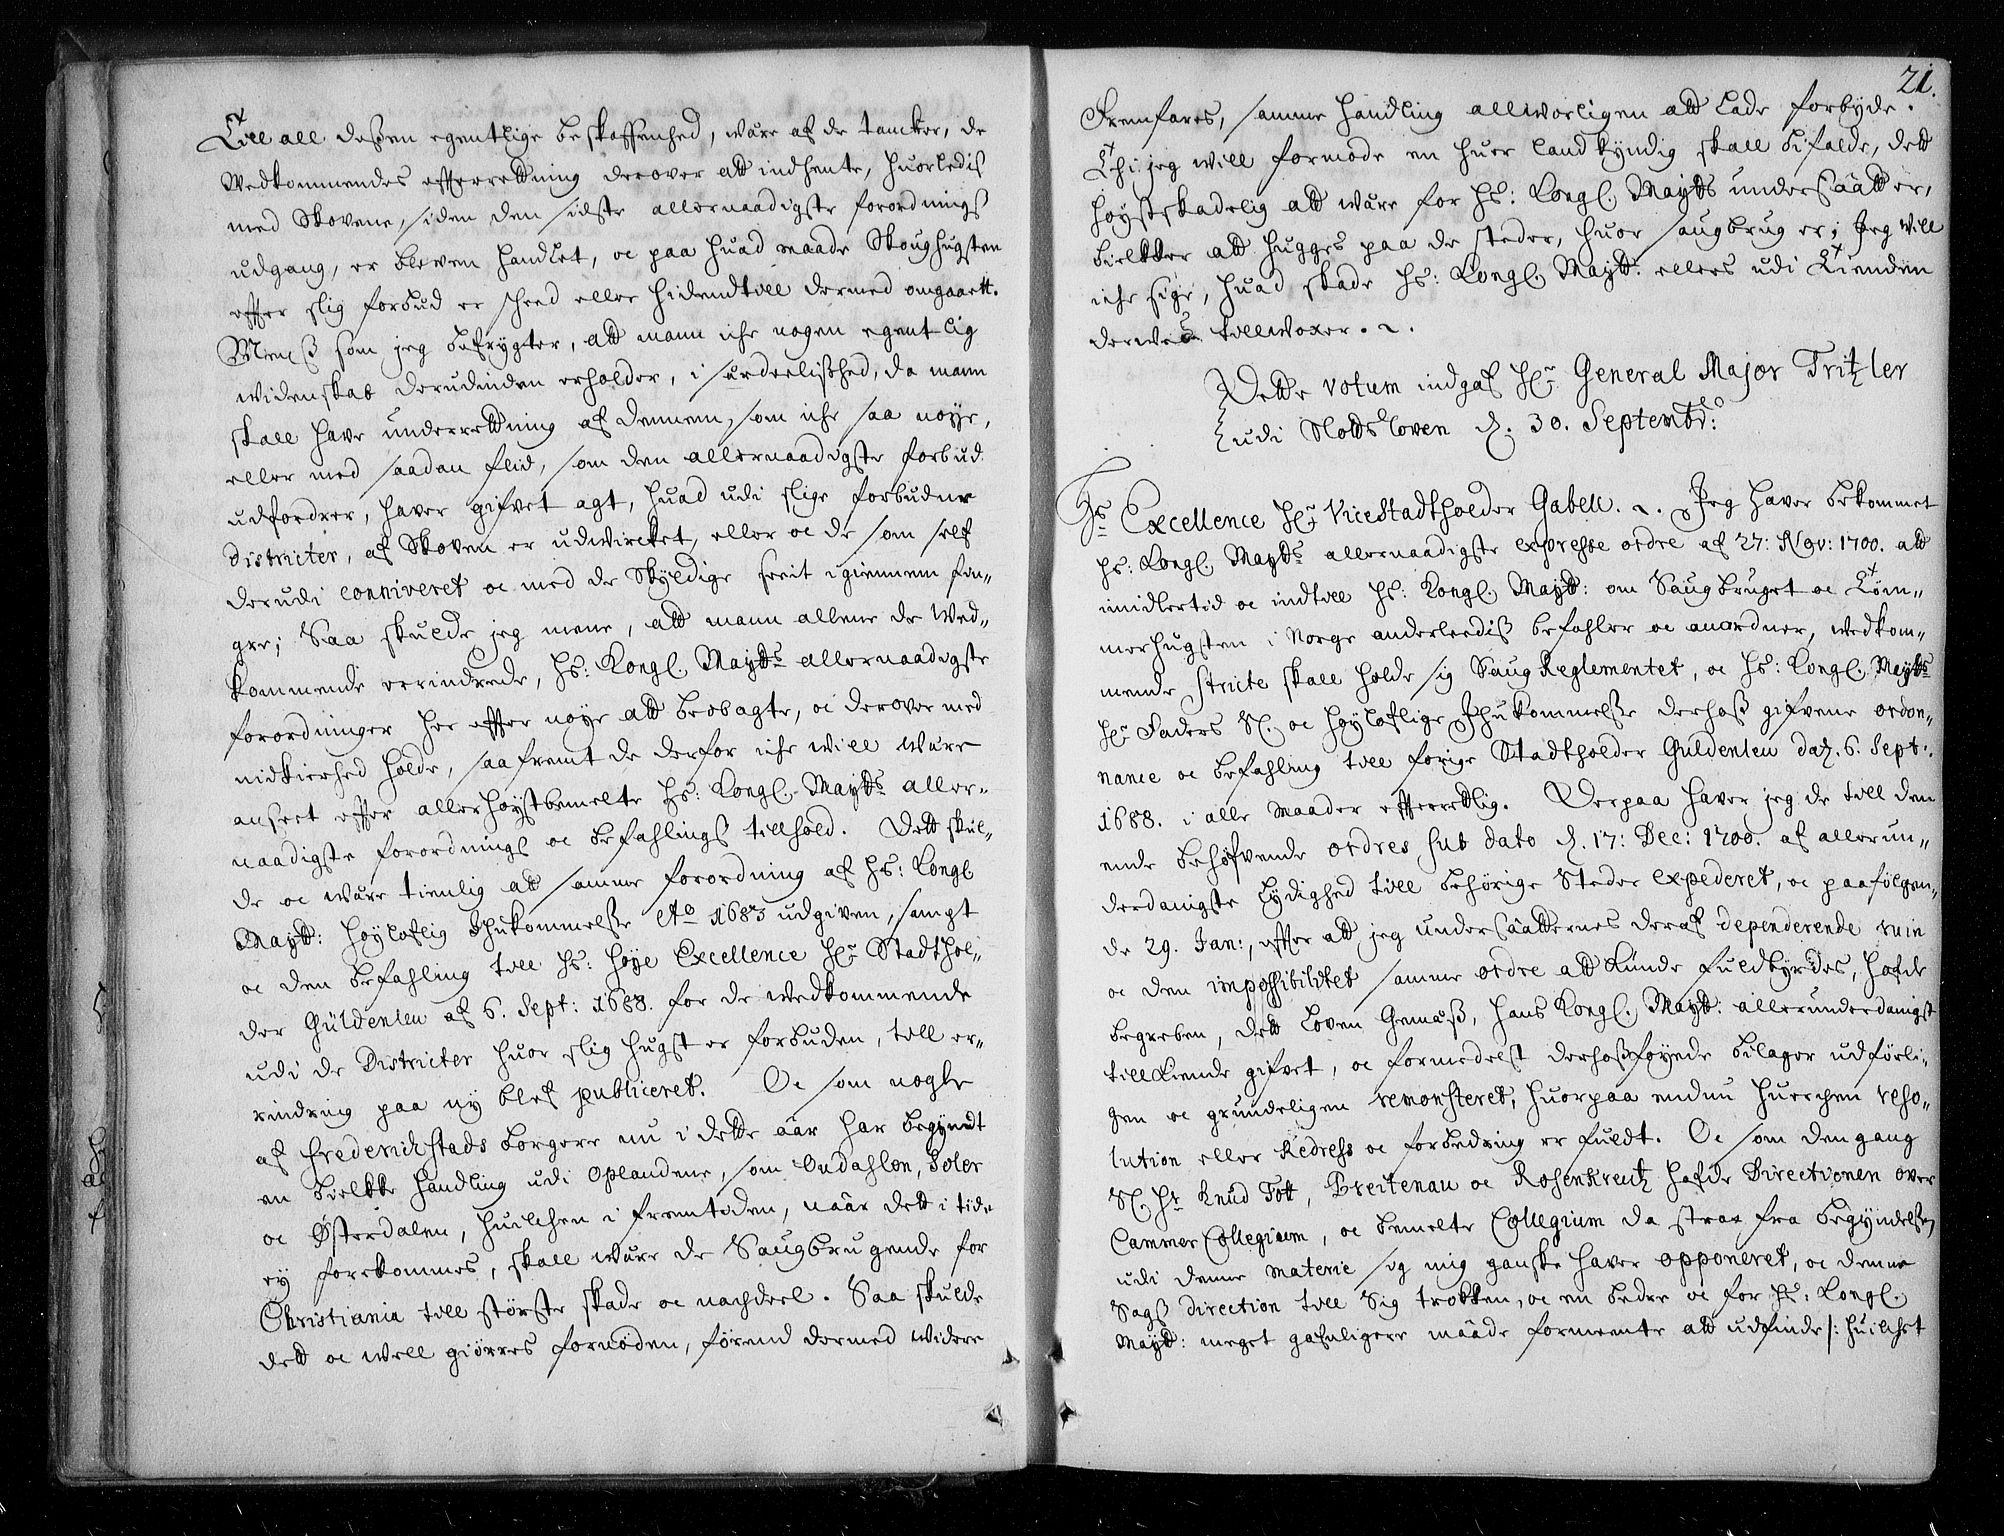 Till all deßen egentlige beskaffenhed, være af de tancker, de
Wedkommendes efterrettning derover att indhente, huorledis
med Skovene, siden den sidste allernaadigste forordnings
udgang, er bleven handlet, oc paa huad maade Skoughugsten
efter slig forbud er scheed eller hidendtill dermed omgaaett.
Menß som jeg befrygter, att mann iche nogen egentlig
widenskab derudinden erholder, i særdeelißhed, da mann
skall have underrettning af dennem, som iche saa nøye,
eller med saadan flid, som den allernaadigste forbud
udfordrer, haver gifvet agt, huad udi slige forbudne
districter, af Skoven er udwircket, eller oc de som self
derudi conniveret oc med de Skyldige seet igiennem fin-
gre; Saa skulde jeg mene, att mann allene de Wed-
kommende erindrede, Hs: Kongl. Maytts allernaadigste
forordninger her effter nøye att beobagte, oc derover med
nidkierhed holde, saafremt de derfor iche will være
anseet effter allerhøystbemelte Hs: Kongl. Maytts aller-
naadigste forordnings oc befahlings tillhold. Dett skul-
de oc være tienlig att samme forordning af Hs: Kongl
Maytt: høyloflig Ihukommelße Ao 1683 udgiven, sampt
oc den befahling till Hs: høye Excellence Hr Stadthol-
der Güldenleu af 6. Sept: 1688. for de wedkommende
udi de Districter huor slig hugst er forbuden, till er-
rindring paa ny blef publiceret. Oc som nogle
af Frederichstads borgere nu i dette aar har begyndt
en bielkke handling udi Oplandene, som Oudahlen, Soler
oc Østerdalen, huilchen i fremtiden, naar dett i tide
ey forekommes, skall være de Saugbrugende for
Christiania till største skade oc nachdeel. Saa skulde
dett oc well giørres fornøden, førend dermed widere
21.
Fremfares, samme handling allworligen att lade forbyde.
Thi jeg will formode en huer landkyndig skall bifalde, dett
høystskadelig att være for Hs: Kongl. Maytts undersaatter,
bielkker att hugges paa de steder, huor Saugbrug er; Jeg will
iche sige, huad skade Hs: Kongl. Maytt: ellers udi Tienden
derved tillwoxer.
Dette votum indgaf Hr General Major Tritzler
udi Slottsloven d. 30. Septembr:
Hs Excellence Hr ViceStadtholder Gabell. Jeg haver bekommet
Hs: Kongl. Maytts allernaadigste expresse ordre af 27: Nov: 1700. att
imidlertid oc indtill Hs: Kongl. Maytt: om Saugbruget oc Tøm-
merhugsten i Norge anderleediß befahler oc anordner, wedkom-
mende stricte skall holde sig Saug Reglementet, oc Hs: Kongl. Maytts
Hr Faders Sl. oc høyloflige Ihukommelße derhoß gifvene ordon-
nance oc befahling till forige Stadtholder Guldenleu dat. 6. Sept:
1688. i alle maader efterrettlig. Derpaa haver jeg de till den
ende behøfvende ordres sub dato d. 17: Dec: 1700. af allerun-
derdanigste Lydighed till behørige Steder expederet, oc paafølgen-
de 29. Jan:, effter att jeg undersaatternes deraf dependerende ruin
oc den impossibilitet samme ordre att Kunde fuldbyrdes, hafde
begreben, dett Loven Gemæß, Hans Kongl. Maytt: allerunderdanigst
tillkiende gifvet, oc formedelst derhoßføyede bilager udførli-
gen oc grundeligen remonsteret, huorpaa endnu huerchen reso-
lution eller Redress oc forbedring er fuldt. Oc som den gang
Sl. Hr Knud Tott, Breitenau oc Rosenkreutz hafde Directionen over
Cammer Collegium, oc bemelte Collegium da strax fra begyndelßen
udi denne materie sig mig ganske haver opponeret, oc denne
Sags direction till Sig trokken, oc en bedre oc for Hs: Kongl.
Maytt: meget gafnligere maade formeente att udfinde /: huilchet